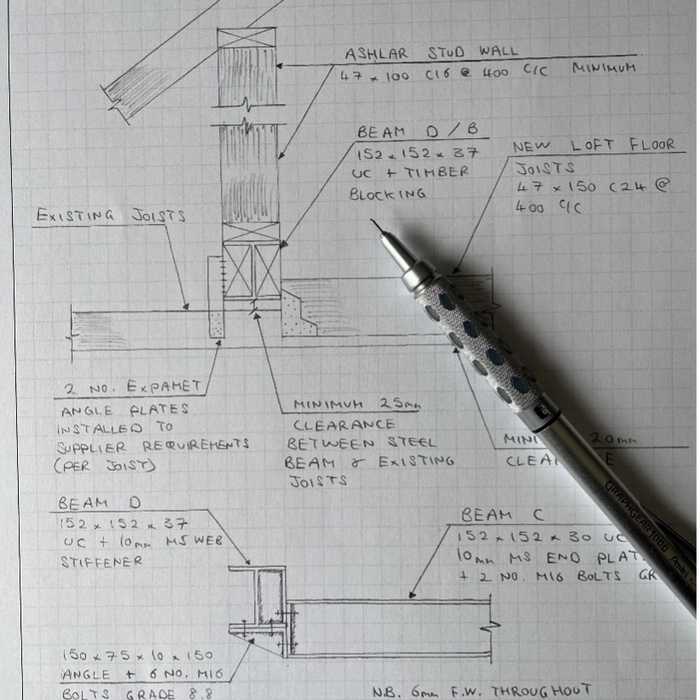 ASHLAR STUD WALL
47 x 100 C16 @ 400 C/C MINIMUM
BEAM D/B
152 x 152 x 37
UC + TIMBER
BLOCKING
NEW LOFT FLOOR
JOISTS
47 x 150 C24 @
400 C/C
EXISTING JOISTS
2 NO. EXPAMET
ANGLE PLATES
INSTALLED TO
SUPPLIER REQUIREMENTS
(PER JOIST)
MINIMUM 25mm
CLEARANCE
BETWEEN STEEL
BEAM & EXISTING
JOISTS
MINI 20mm
CLEA E
BEAM D
152 x 152 x 37
UC + 10mm MS WEB
STIFFENER
BEAM C
152 x 152 x 30 UC
10mm MS END PLAT
+ 2 NO. M16 BOLTS GR
150 x 75 x 10 x 150
ANGLE + 6 NO. M16
BOLTS GRADE 8.8
N.B. 6mm F.W. THROUGHOUT
GRAPHGEAR 1000